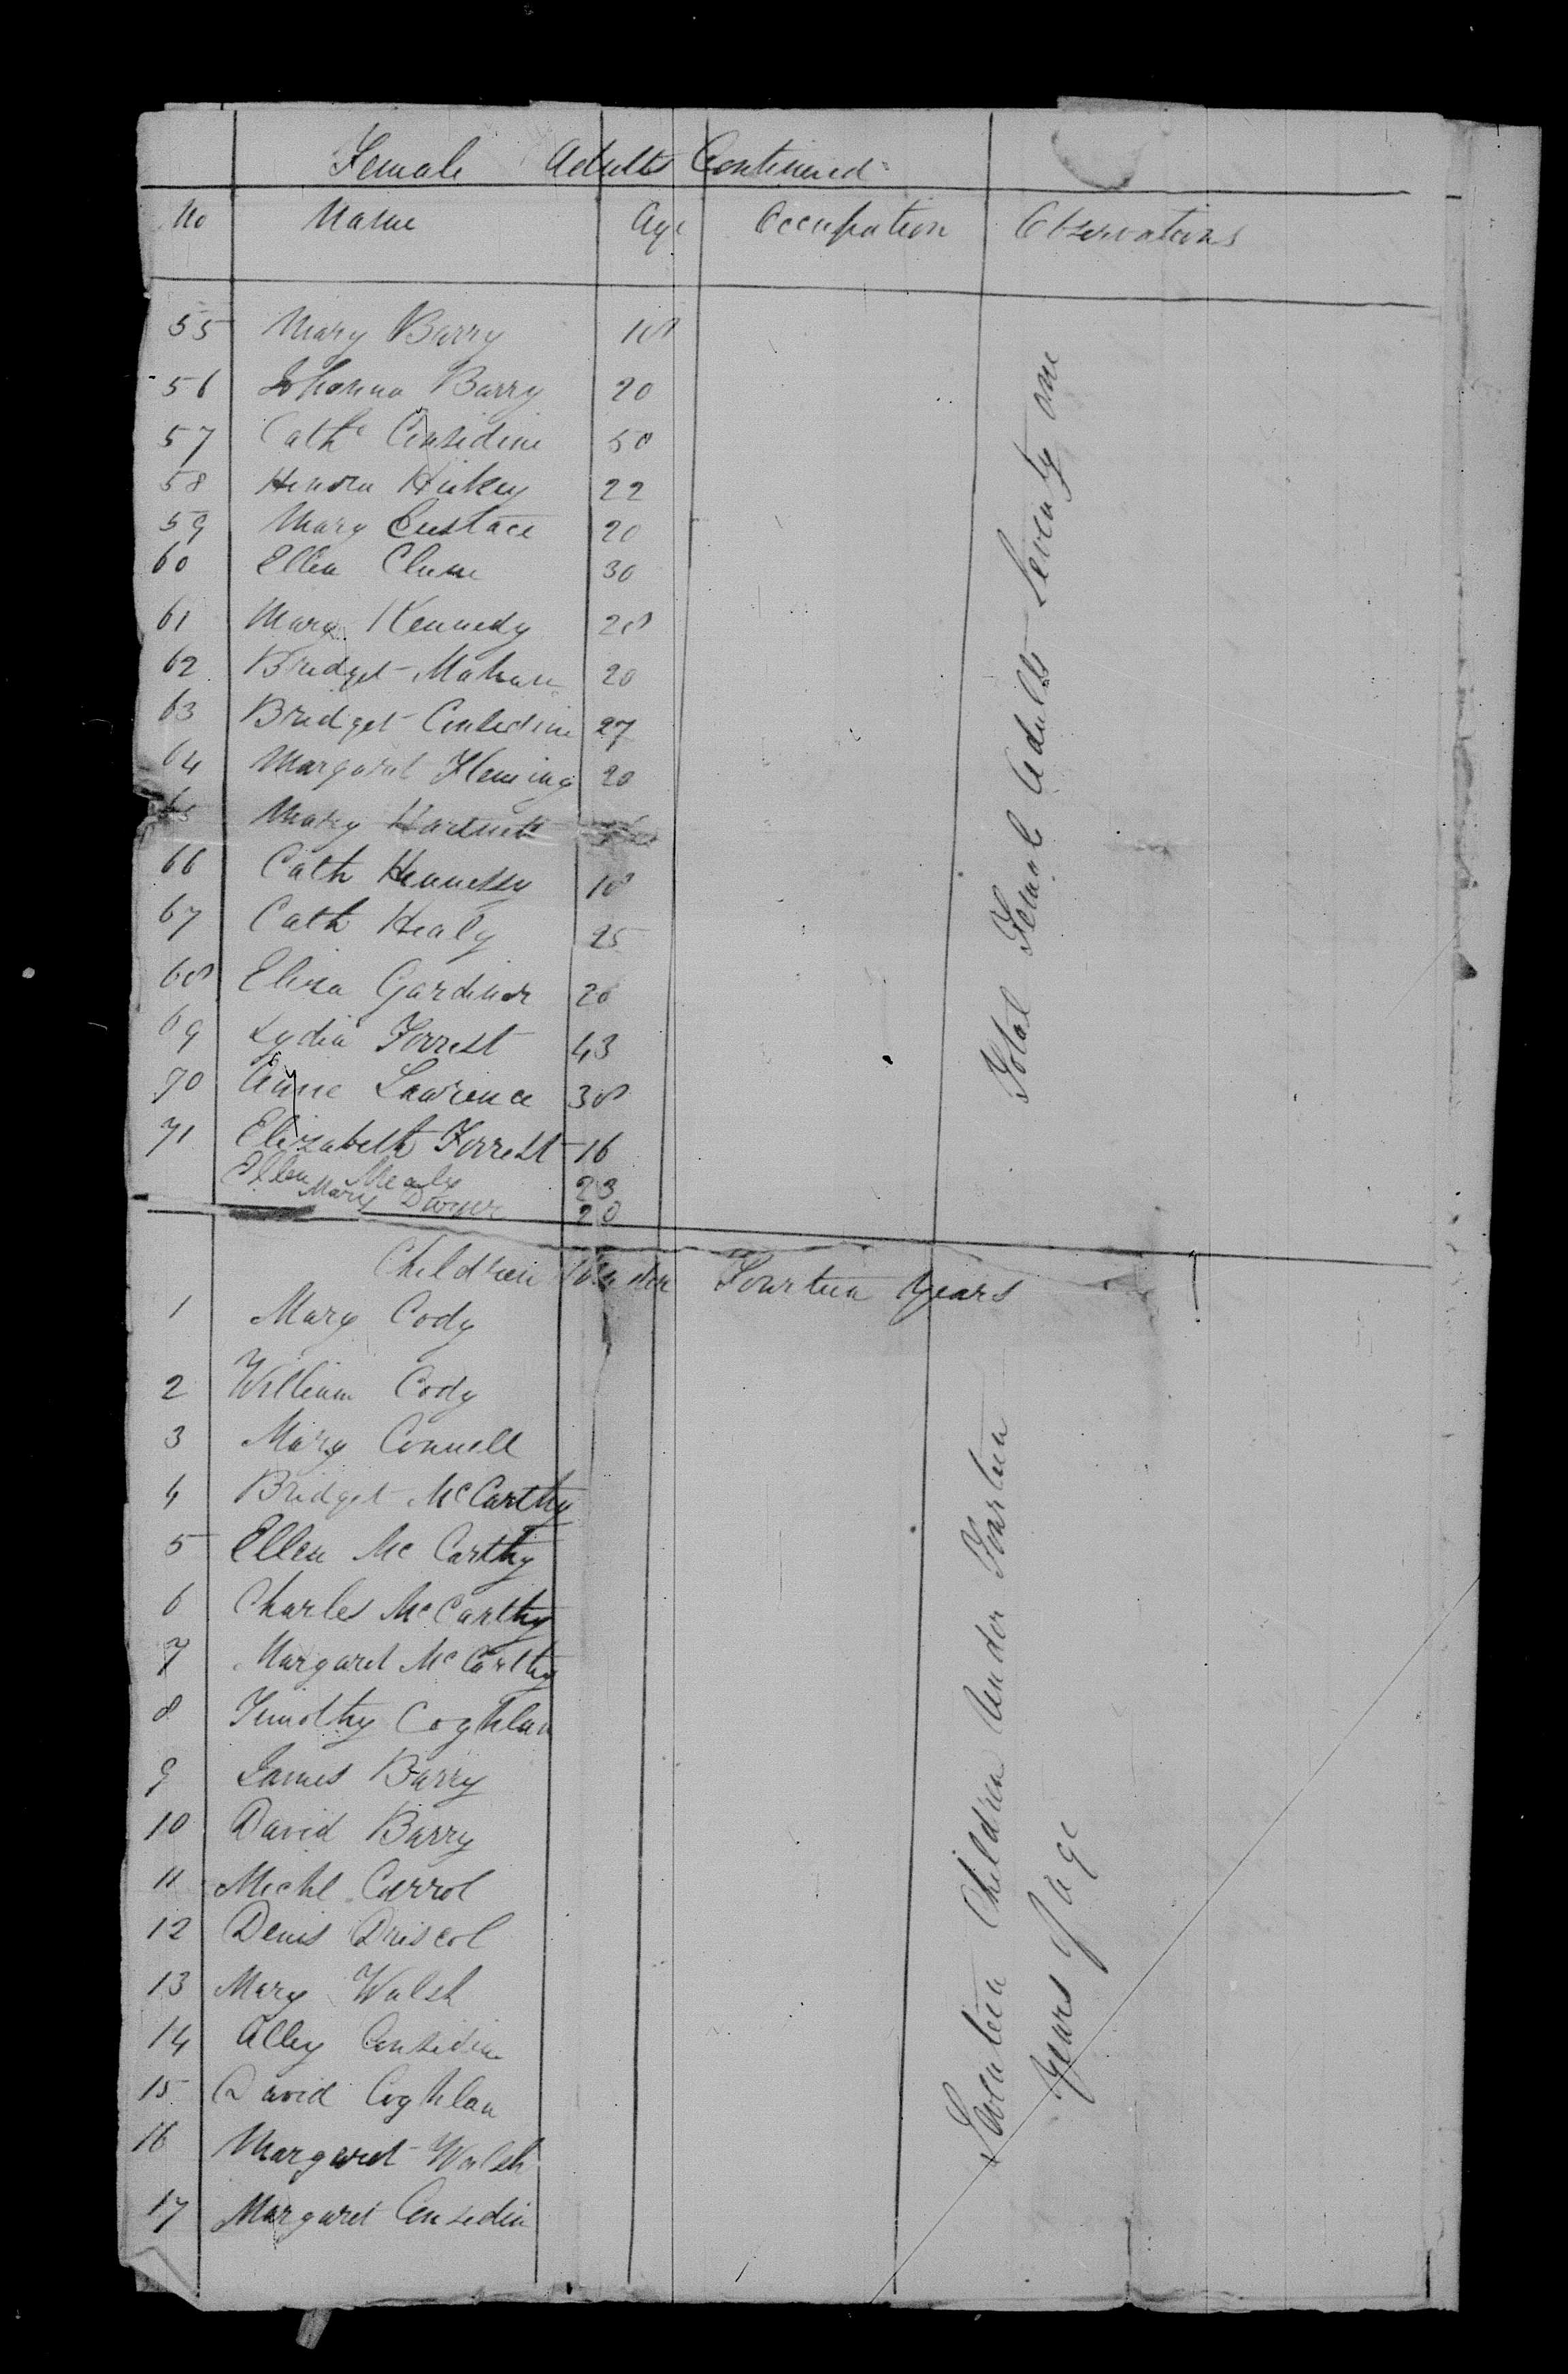 Female Adults Continued
No Name Age Occupation Observations
55 Mary Barry 18
56 Johanna Barry 20
57 Cathe Considine 50
58 Honora Hickey 22
59 Mary Eustace 20
60 Ellen Clune 30
61 Mary Kennedy 28
62 Bridget Mahon 20
63 Bridget Considine 27
64 Margaret Fleming 20
65 Mary Hartnett
66 Cath Hennessy 18
67 Cath Healy 25
68 Eliza Gardiner 20
69 Lydia Forrest 43
70 Anne Lawrence 38
71 Elizabeth Forrest 16
Ellen Mealy 23
Mary Dwyer 20
Total Female Adults Seventy one
Children Under Fourteen Years
1 Mary Cody
2 William Cody
3 Mary Connell
4 Bridget McCarthy
5 Ellen McCarthy
6 Charles McCarthy
7 Margaret McCarthy
8 Timothy Coghlan
9 James Barry
10 David Barry
11 Michl Carrol
12 Denis Driscol
13 Mary Walsh
14 Alley Considine
15 David Coghlan
16 Margaret Walsh
17 Margaret Considin
Seventeen Children Under Fourteen
Years of age